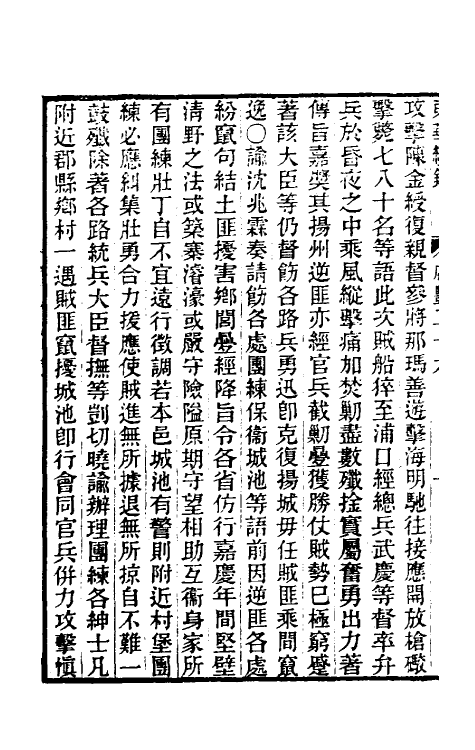 攻擊陳金綬復親督參將那瑪善遊擊海明馳往接應開放槍礮
擊斃七八十名等語此次賊船猝至浦口經總兵武慶等督率弁
兵於昏夜之中乘風縱擊痛加焚勦盡數殲捦實屬奮勇出力著
傳旨嘉奬其揚州逆匪亦經官兵截勦疊獲勝仗賊勢已極窮蹙
著該大臣等仍督飭各路兵勇迅卽克復揚城毋任賊匪乘間竄
逸○諭沈兆霖奏請飭各處團練保衞城池等語前因逆匪各處
紛竄句結土匪擾害鄉閭疊經降旨令各省仿行嘉慶年間堅壁
淸野之法或築寨濬濠或嚴守險隘原期守望相助互衞身家所
有團練壯丁自不宜遠行徵調若本邑城池有警則附近村堡團
練必應糾集壯勇合力援應使賊進無所據退無所掠自不難一
鼓殲除著各路統兵大臣督撫等剴切曉諭辦理團練各紳士凡
附近郡縣鄉村一遇賊匪竄擾城池卽行會同官兵併力攻擊愼